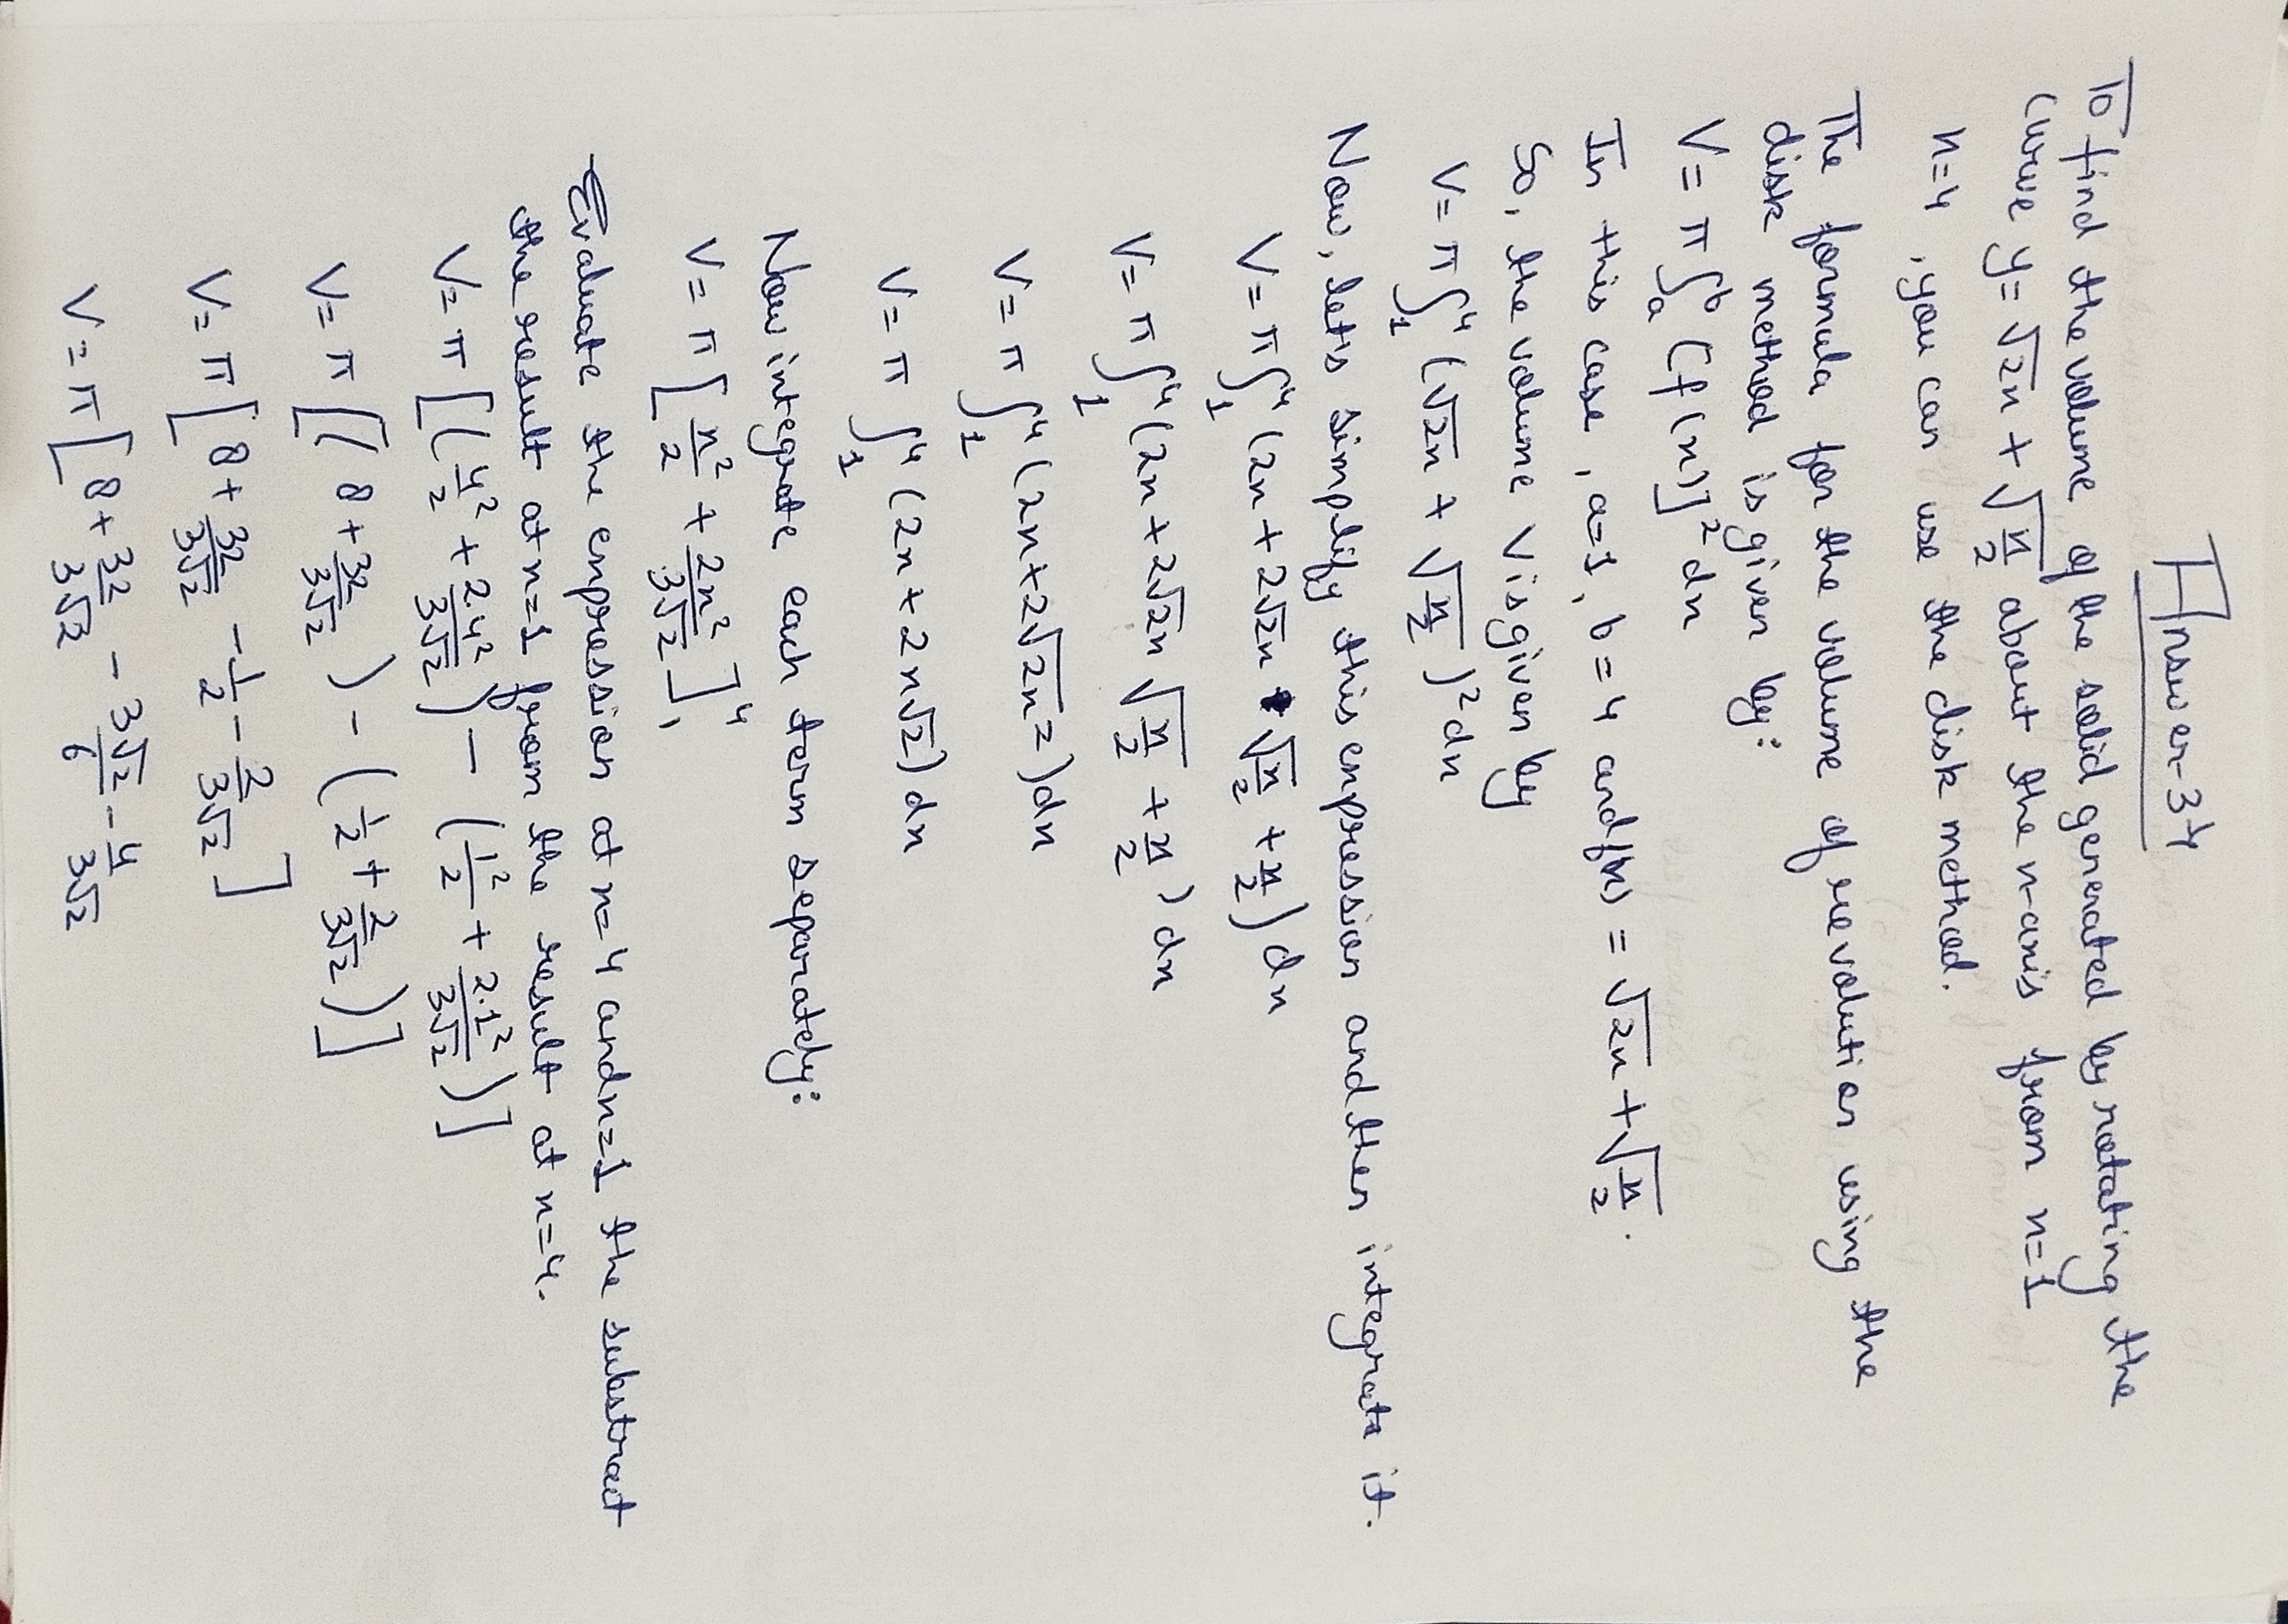 Answer-34
To find the volume of the solid generated by rotating the
curve y = √2x + √x/2 about the x-axis from x=1
x=4, you can use the disk method.
The formula for the volume of revolution using the
disk method is given by:
V = π ∫ₐᵇ [f(x)]² dx
In this case, a=1, b=4 and f(x) = √2x + √x/2.
So, the volume V is given by
V = π ∫₁⁴ (√2x + √x/2)² dx
Now, let's simplify this expression and then integrate it.
V = π ∫₁⁴ (2x + 2√2x · √x/2 + x/2) dx
V = π ∫₁⁴ (2x + 2√2x √x/2 + x/2) dx
V = π ∫₁⁴ (2x + 2√2x²) dx
V = π ∫₁⁴ (2x + 2x√2) dx
Now integrate each term separately:
V = π [x²/2 + 2x²/3√2]₁⁴
Evaluate the expression at x=4 and x=1 the substract
the result at x=1 from the result at x=4.
V = π [(4²/2 + 2.4²/3√2) - (1²/2 + 2.1²/3√2)]
V = π [(8 + 32/3√2) - (1/2 + 2/3√2)]
V = π [8 + 32/3√2 - 1/2 - 2/3√2]
V = π [8 + 32/3√2 - 3√2/6 - 4/3√2